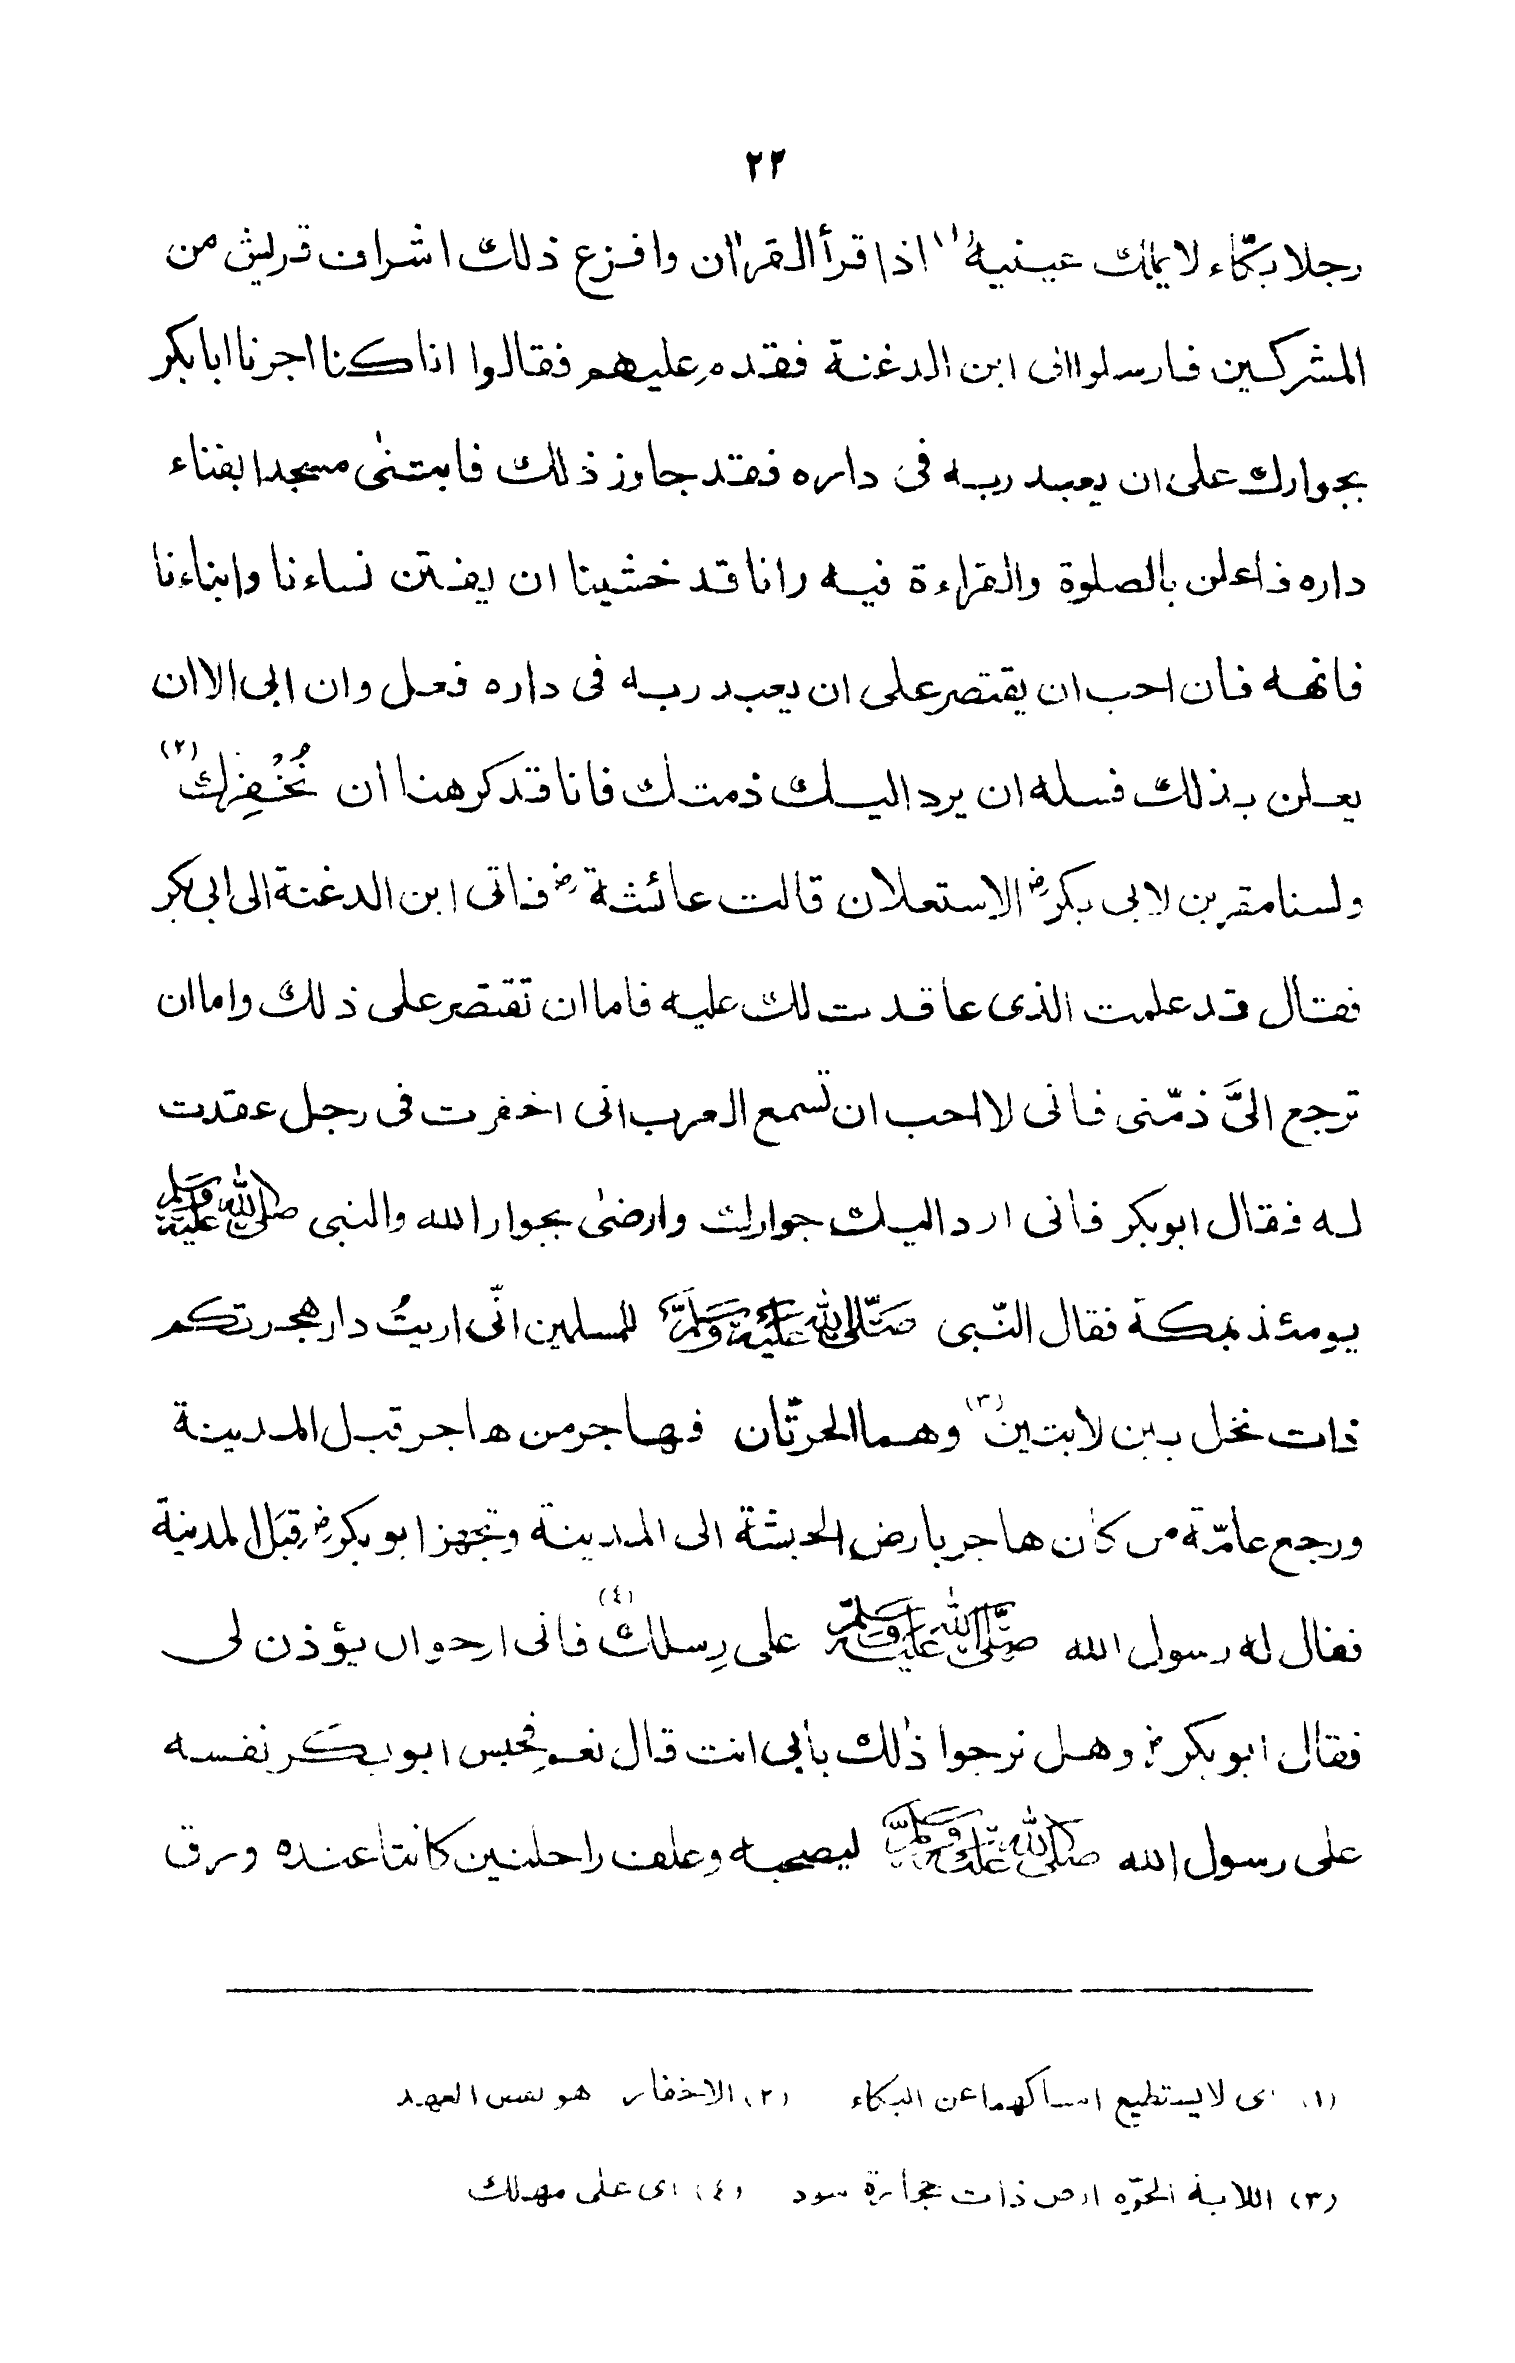 ٢٣
رجلا بكّاء لا يملك عينيه (١) اذا قرأ القرٰان وافزع ذلك اشراف قريش من
المشركين فارسلوا الى ابن الدغنة فقدم عليهم فقالوا انا كنا اجرنا ابا بكر
بجوارك على ان يعبد ربه فى داره فقد جاوز ذلك فابتنٰى مسجدا بفناء
داره فاعلن بالصلوة والقراءة فيه وانا قد خشينا ان يفتن نساءنا وابناءنا
فانهه فان احب ان يقتصر على ان يعبد ربه فى داره فعل وان ابى الا ان
يعلن بذلك فسله ان يرد اليك ذمتك فانا قد كرهنا ان نُخْفِرَك (٢)
ولسنا مقرين لابى بكرؓ الاستعلان قالت عائشةؓ فاتى ابن الدغنة الى ابى بكر
فقال قد علمت الذى عاقدت لك عليه فاما ان تقتصر على ذلك واما ان
ترجع الىَّ ذمّتى فانى لا احب ان تسمع العرب انى اخفرت فى رجل عقدت
له فقال ابوبكر فانى ارد اليك جوارك وارضٰى بجوار الله والنبى صلى الله عليه وسلم
يومئذ بمكة فقال النّبى صَلَّى الله عَلَيْهِ وَسَلَّمَ للمسلمين انّى اريتُ دار هجرتكم
ذات نخل بين لابتين (٣) وهما الحرتّان فهاجر من هاجر قبل المدينة
ورجع عامّة من كان هاجر بارض الحبشة الى المدينة وتجهز ابو بكرؓ قِبَل المدينة
فقال له رسول الله صَلَّى الله عَلَيْهِ وَسَلَّمَ على رِسلك (٤) فانى ارجو ان يؤذن لى
فقال ابو بكرؓ وهل نرجوا ذٰلك بأبى انت قال نعم فحبس ابو بكر نفسه
على رسول الله صَلَّى الله عَلَيْهِ وَسَلَّمَ ليصحبه وعلف راحلتين كانتا عنده ورق
(١) اى لا يستطيع امساكهما عن البكاء (٢) الاخفار هو نقض العهد
(٣) اللابة الحرّه ارض ذات حجارة سود (٤) اى على مهلك